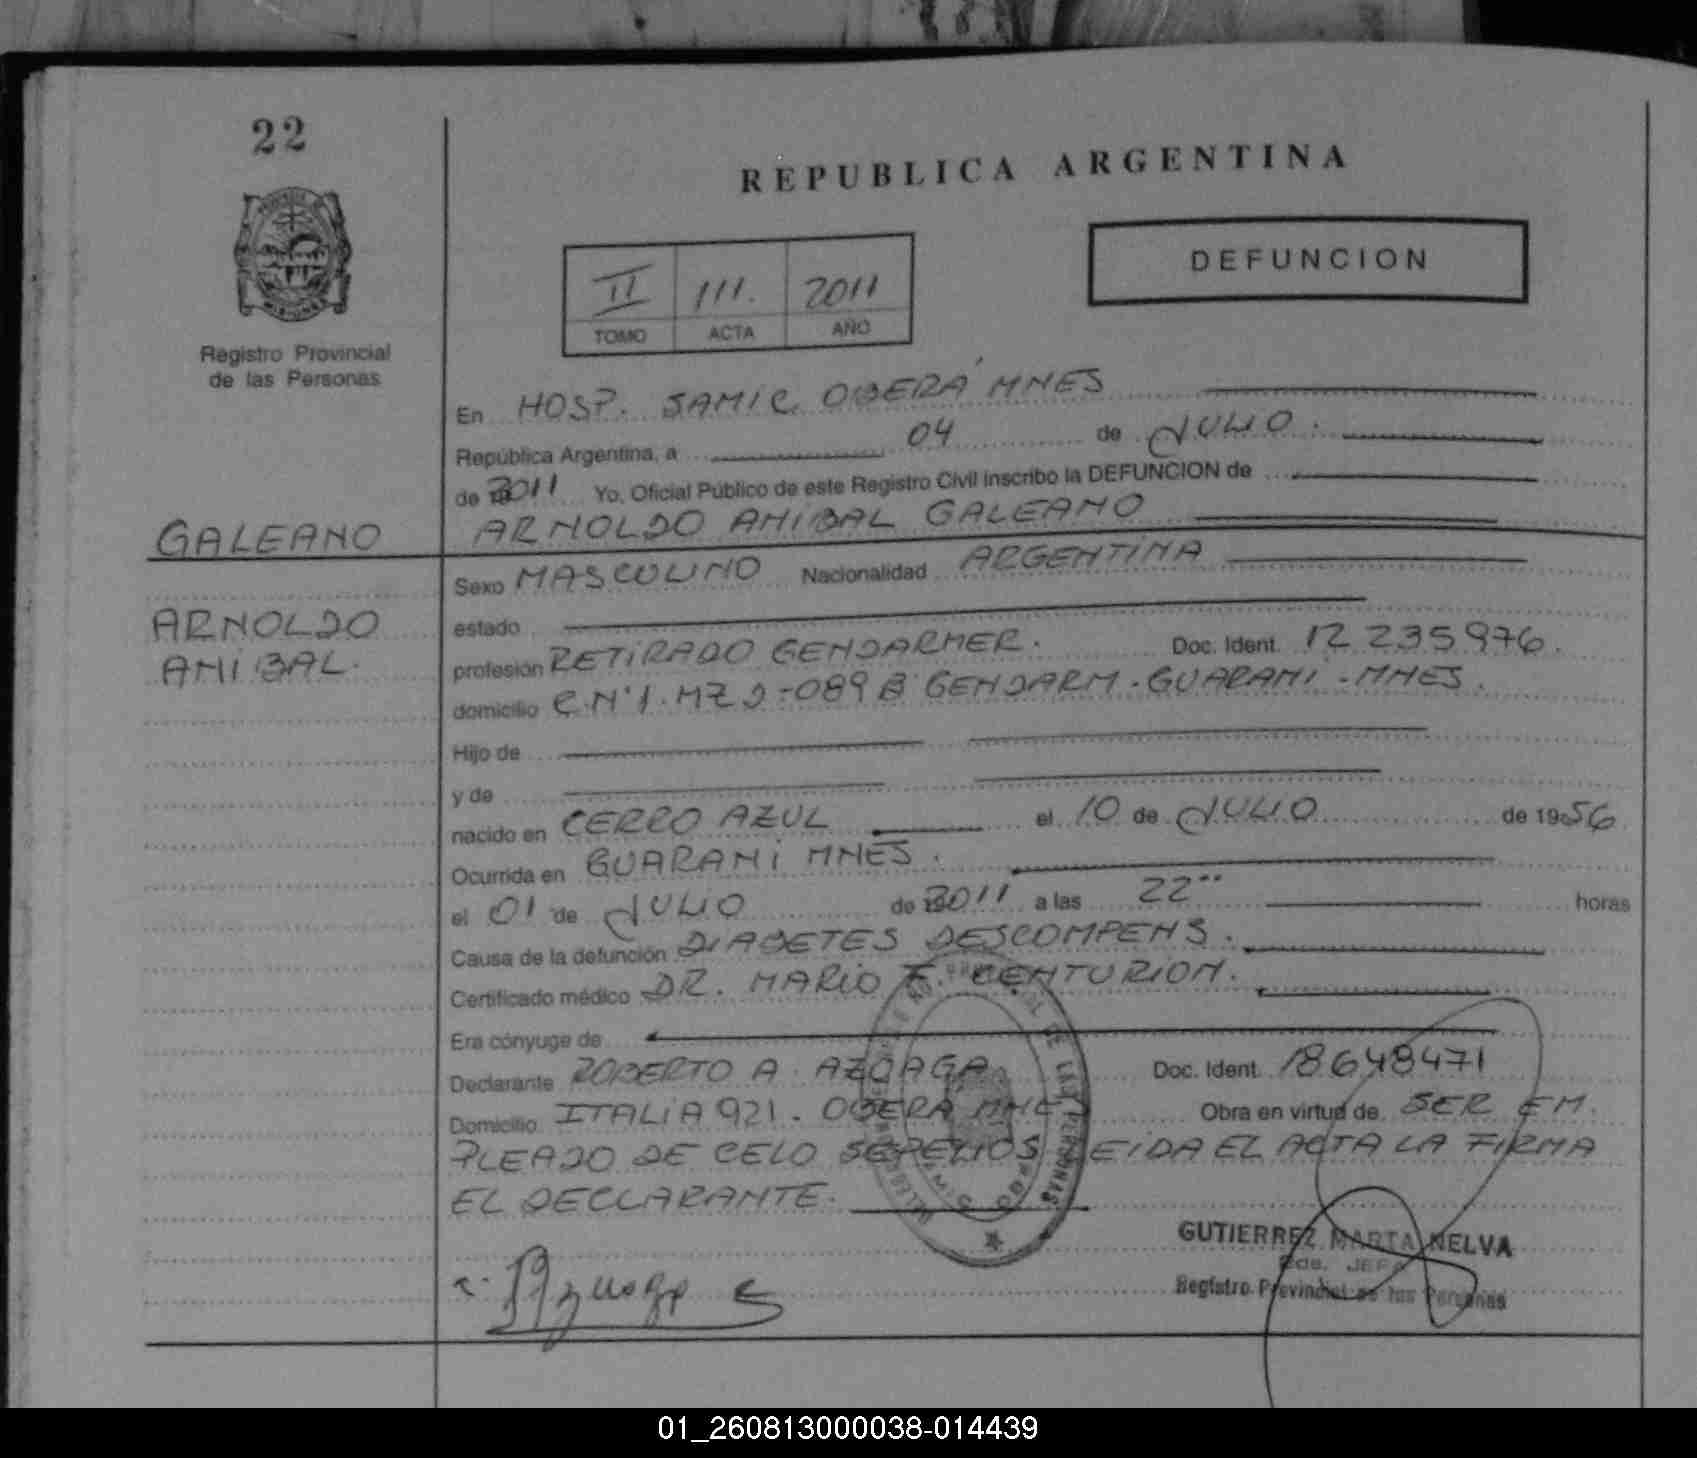 22
REPUBLICA ARGENTINA
DEFUNCION
II 111. 2011
TOMO ACTA AÑO
MISIONES
Registro Provincial
de las Personas
En HOSP. SAMIC OBERÁ MNES
República Argentina, a 04 de JULIO.
de 2011 Yo, Oficial Público de este Registro Civil inscribo la DEFUNCION de
GALEANO ARNOLDO ANIBAL GALEANO
Sexo MASCULINO Nacionalidad ARGENTINA
ARNOLDO
ANIBAL.
estado
profesión RETIRADO GENDARMER. Doc. Ident. 12 235976.
domicilio C.N°1.MZ D-089 B GENDARM.GUARANI.MNES.
Hijo de
y de
nacido en CERRO AZUL el 10 de JULIO de 1956
Ocurrida en GUARANI MNES.
el 01 de JULIO de 2011 a las 22 horas
Causa de la defunción DIABETES DESCOMPENS.
Certificado médico DR. MARIO F. CENTURION.
Era cónyuge de
Declarante ROBERTO A. AZOAGA Doc. Ident. 18648471
Domicilio ITALIA 921. OBERA MNES Obra en virtud de SER EM
PLEADO DE CELO SEPELIOS LEIDA EL ACTA LA FIRMA
EL DECLARANTE.
GUTIERREZ MARTA NELVA
JEFA
Registro Provincial de las Personas
01_260813000038-014439